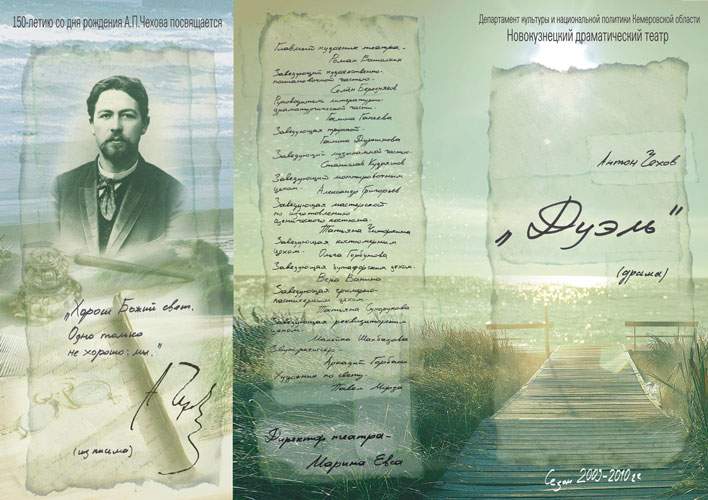 150-летию со дня рождения А.П.Чехова посвящается
„Хорош Божий свет.
Одно только
не хорошо: мы."
(из письма)
Главный художник театра-
Роман
Заведующий художественно-
постановочной частью-
Семён Березняков
Руководитель литературно-
драматургической части-
Галина Ганеева
Заведующая труппой-
Галина
Заведующий музыкальной частью-
Станислав
Заведующий монтировочным
цехом- Александр Григорьев
Заведующая мастерской
по изготовлению
сценического костюма-
Татьяна
Заведующая костюмерным
цехом-
Ольга Горбунова
Заведующая бутафорским цехом-
Вера Ванина
Заведующая гримерно-
постижерным цехом-
Татьяна Сухорукова
Заведующая реквизиторским
цехом-
Шахбазова
Звукорежиссер-
Аркадий
Художник по свету-
Павел
Директор театра-
Марина Евса
Департамент культуры и национальной политики Кемеровской области
Новокузнецкий драматический театр
Антон Чехов
„Дуэль"
(драма)
Сезон 2009-2010 гг